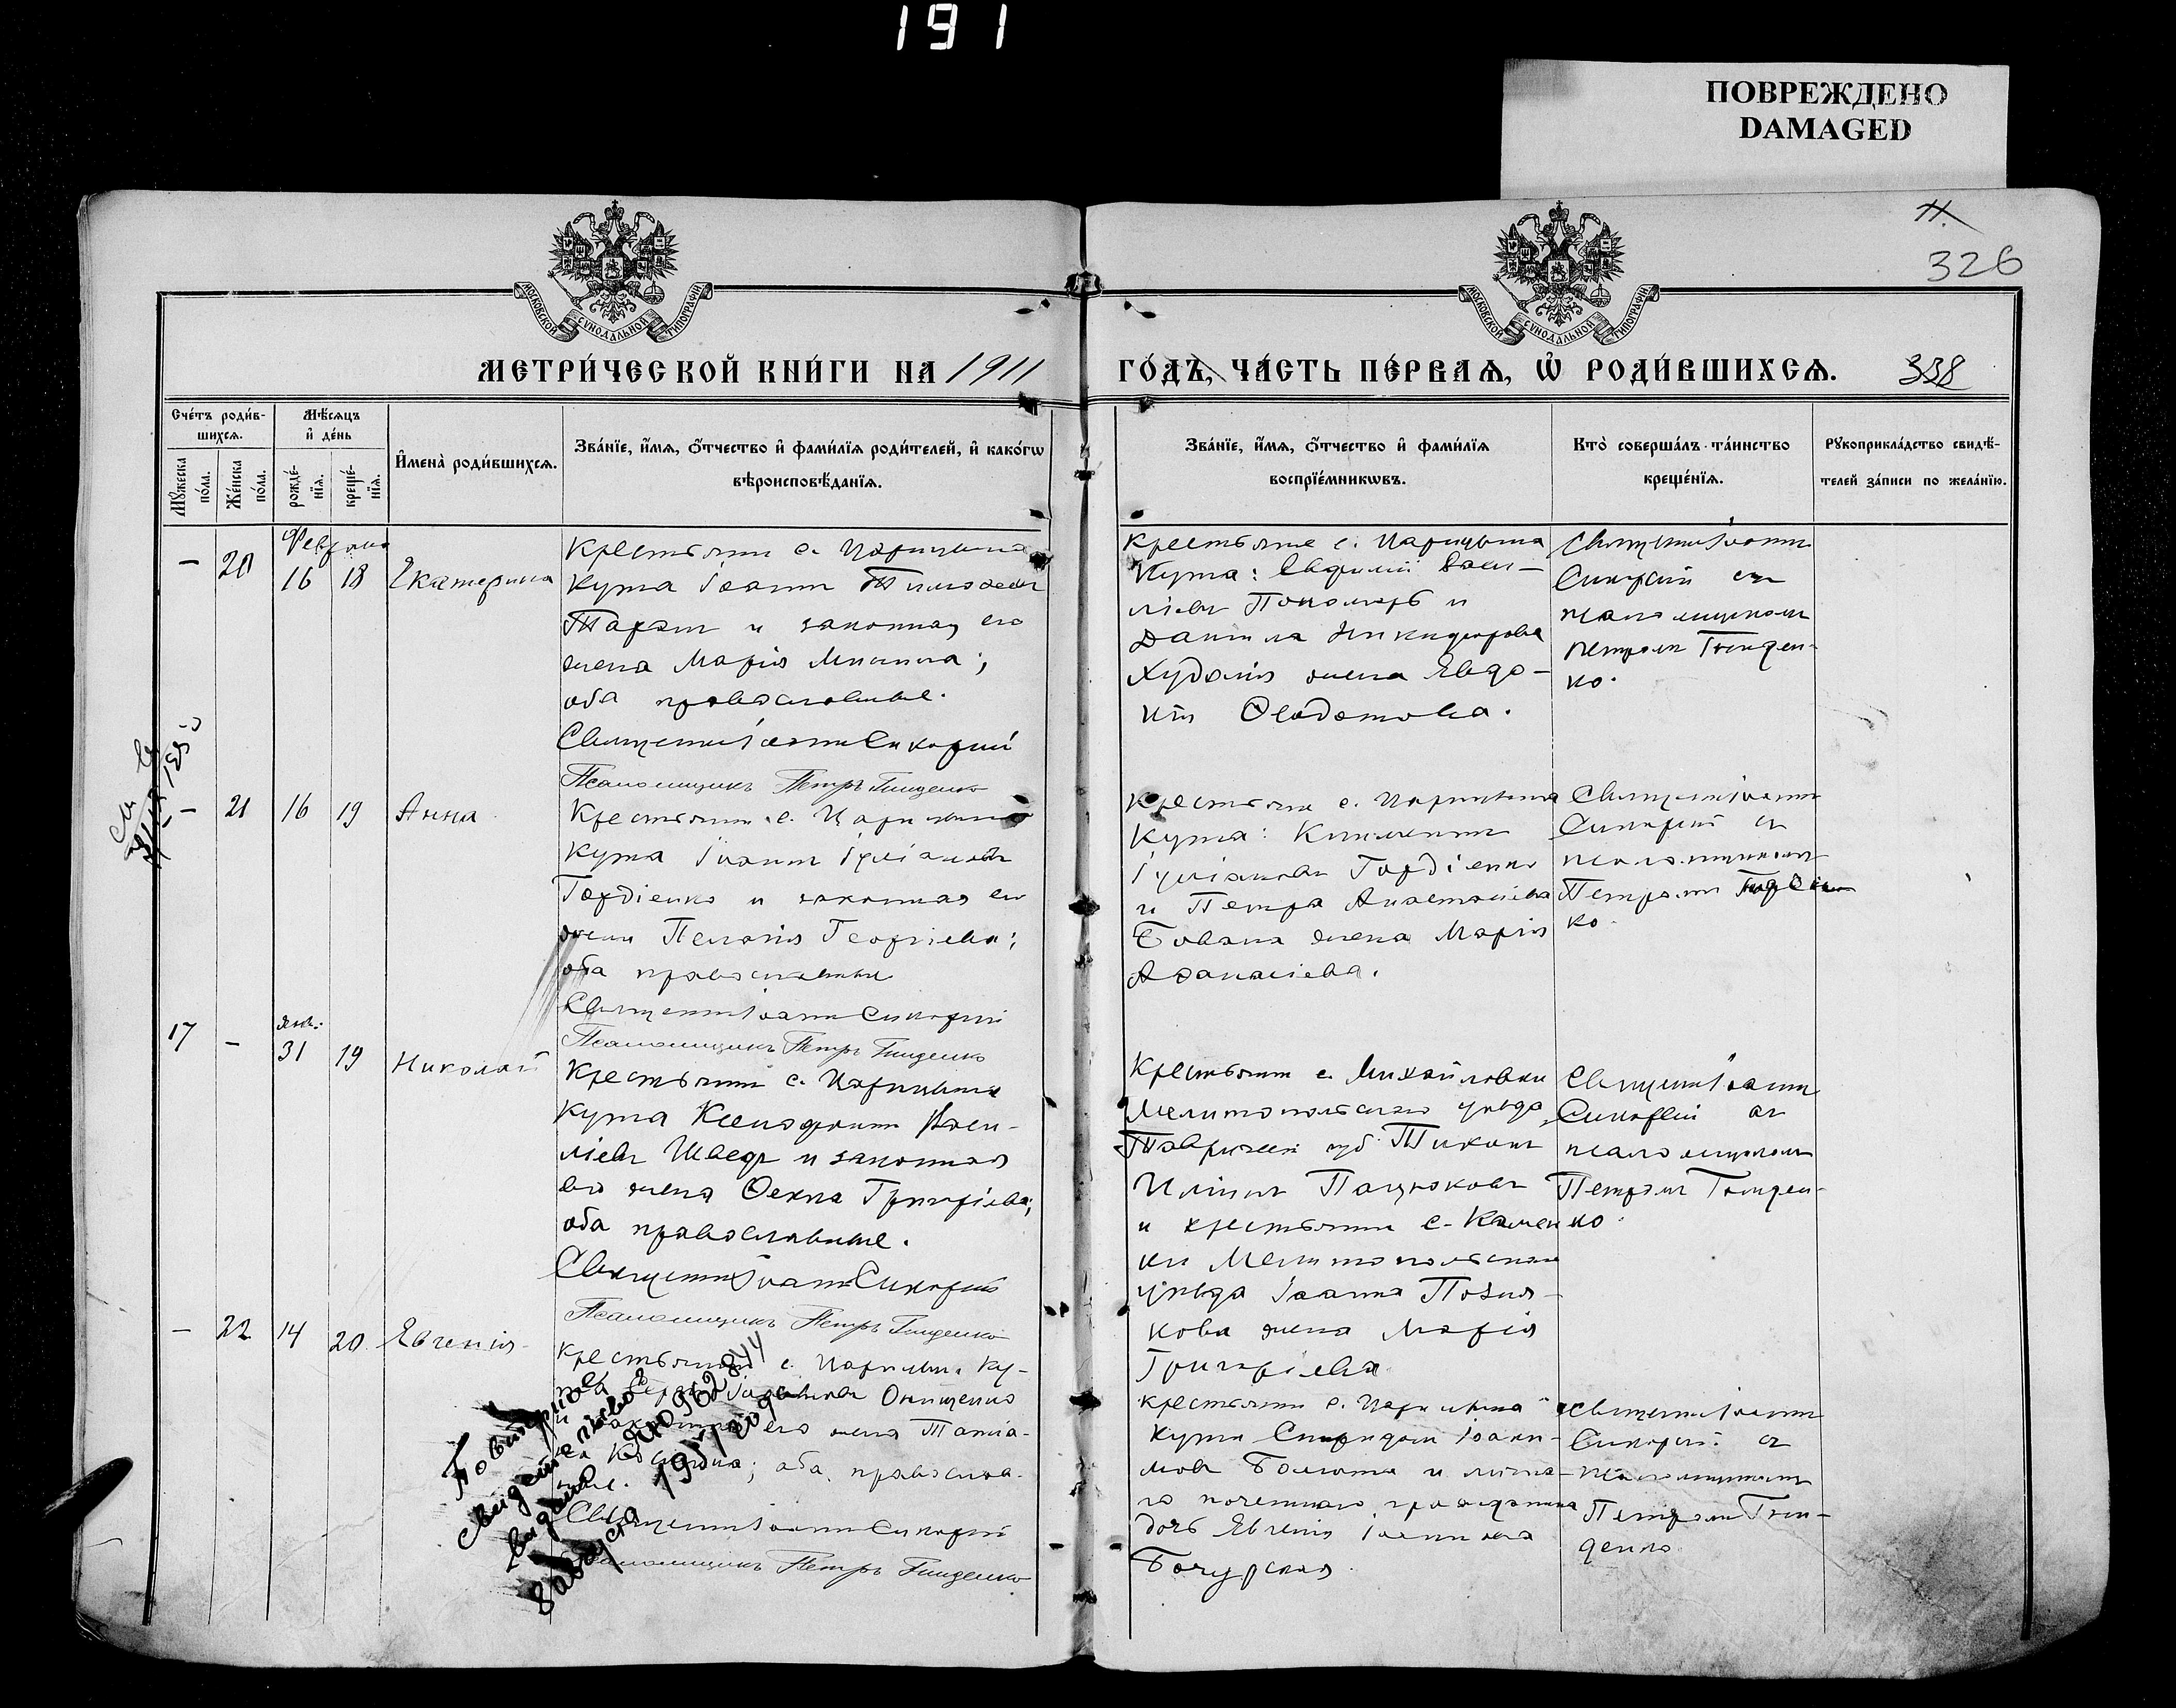 191
ПОВРЕЖДЕНО
DAMAGED
11.
326
МОСКОВСКОЙ СѴНОДАЛЬНОЙ ТИПОГРАФІИ
МОСКОВСКОЙ СѴНОДАЛЬНОЙ ТИПОГРАФІИ
МЕТРИ́ЧЕСКОЙ КНИ́ГИ НА 1911
ГО́ДЪ, ЧА́СТЬ ПЕ́РВАѦ, Ѡ҆ РОДИ́ВШИХСѦ. 338
Сче́тъ роди́в-
шихсѧ.
Мѣ́сѧцъ
и҆ де́нь
Мꙋ́жеска по́ла.
Же́нска по́ла.
рожде́-
нїѧ.
креще́-
нїѧ.
И҆мена̀ роди́вшихсѧ.
Зва́нїе, и҆́мѧ, ѻ҆́тчество и҆ фами́лїѧ роди́телей, и҆ како́гѡ
вѣроисповѣ́данїѧ.
Зва́нїе, и҆́мѧ, ѻ҆́тчество и҆ фами́лїѧ
воспрїе́мникѡвъ.
Кто̀ соверша́лъ та́инство
креще́нїѧ.
Рꙋкоприкла́дство свидѣ́-
телей за́писи по жела́нїю.
Февраля
– 20 16 18 Екатерина
Крестьянин с. Царицына
Кута Іоанн Тимофеев
Таран и законная его
жена Марія Минина;
оба православные.
Священник Іоанн Сикорский
Псаломщикъ Петръ Гниденко
Крестьяне с. Царицына
Кута: Евфимій Васи-
ліев Пономарь и
Даниила Никифорова
жена Евдо-
кія Феодотова.
Священник Іоанн
Сикорский с
псаломщиком
Петром Гниден-
ко.
– 21 16 19 Анна
Крестьянин с. Царицына
Кута Іоанн Іуліанов
Гордіенко и законная его
жена Пелагія Георгіева;
оба православные
Священник Іоанн Сикорский
Псаломщикъ Петръ Гниденко
Крестьяне с. Царицына
Кута: Климент
Іуліанов Гордіенко
и Петра Анастасіева
Бована жена Марія
Афанасіева.
Священник Іоанн
Сикорский с
псаломщиком
Петром
ко.
17 – янв. 31 19 Николай
Крестьянин с. Царицына
Кута Ксенофонт Васи-
ліев Швед и законная
его жена Фекла Григоріева;
оба православные.
Священник Іоанн Сикорский
Псаломщикъ Петръ Гниденко
Крестьянин с. Михайловки
Мелитопольского уезда,
Таврической губ. Тихон
Ильин Пацюков
и крестьянин с. Камен
ки Мелитопольского
уезда Іоанна Позня-
кова жена Марія
Григоріева
Священник Іоанн
Сикорский с
псаломщиком
Петром Гниден-
ко.
– 22 14 20 Евгенія
Крестьянин с. Царицына Ку-
та Онищенко
и законная его жена Татіа-
на; оба православ-
ные.
Священник Іоанн Сикорский
Псаломщикъ Петръ Гниденко
Повторное
свидетельство
выдано
8 августа 1951 года
Крестьянин с. Царицына
Кута Спиридон Іоаки-
мов Болюта и лично-
го почетного гражданина
дочь Евгенія Іоаннова
Бочурская
Священник Іоанн
Сикорский с
псаломщиком
Петром Гни-
денко